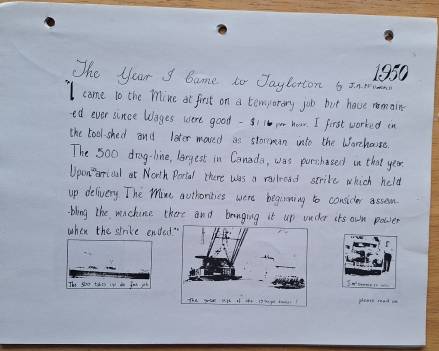 The Year I Came to Taylorton by J.A. 1950
"I came to the Mine at first on a temporary job but have remain-
-ed ever since Wages were good - $1.16 per hour. I first worked in
the tool-shed and later moved as storeman into the Warehouse.
The 500 drag-line, largest in Canada, was purchased in that year.
Upon arrival at North Portal there was a railroad strike which held
up delivery. The Mine authorities were beginning to consider assem-
-bling the machine there and bringing it up under its own power
when the strike ended."
The 500 takes up its first job
The great size of the
please read on